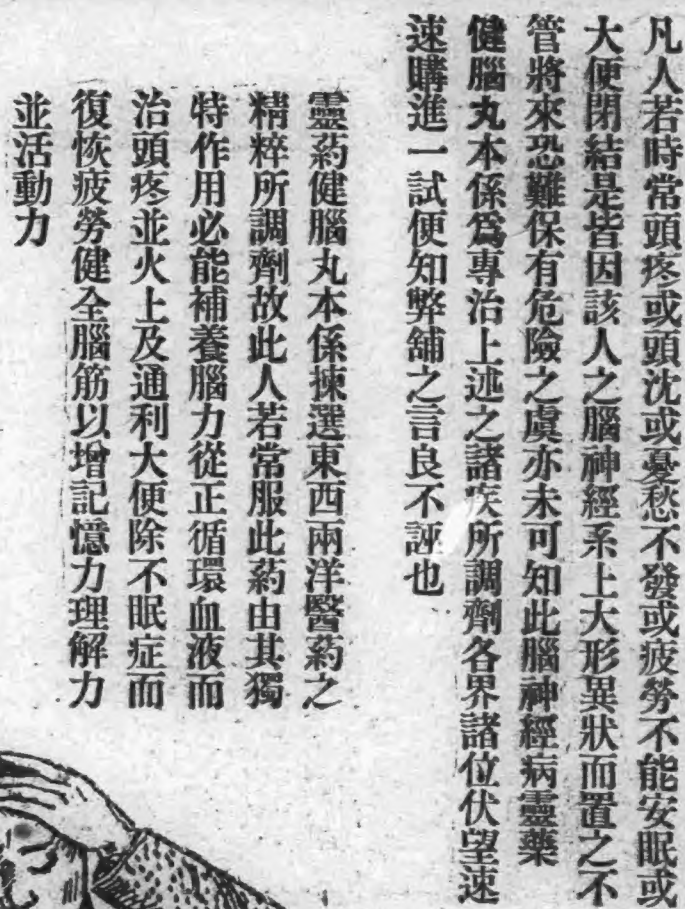 凡人若時常頭疼或頭沈或憂愁不發或疲勞不能安眠或
大便閉結是皆因該人之腦神經系上大形異狀而置之不
管將來恐難保有危險之虞亦未可知此腦神經病靈藥
健腦丸本係爲專治上述之諸疾所調劑各界諸位伏望速
速購進一試便知弊舖之言良不誣也
靈葯健腦丸本係揀選東西兩洋醫葯之
精粹所調劑故此人若常服此葯由其獨
特作用必能補養腦力從正循環血液而
治頭疼並火上及通利大便除不眠症而
復恢疲勞健全腦筋以增記憶力理解力
並活動力